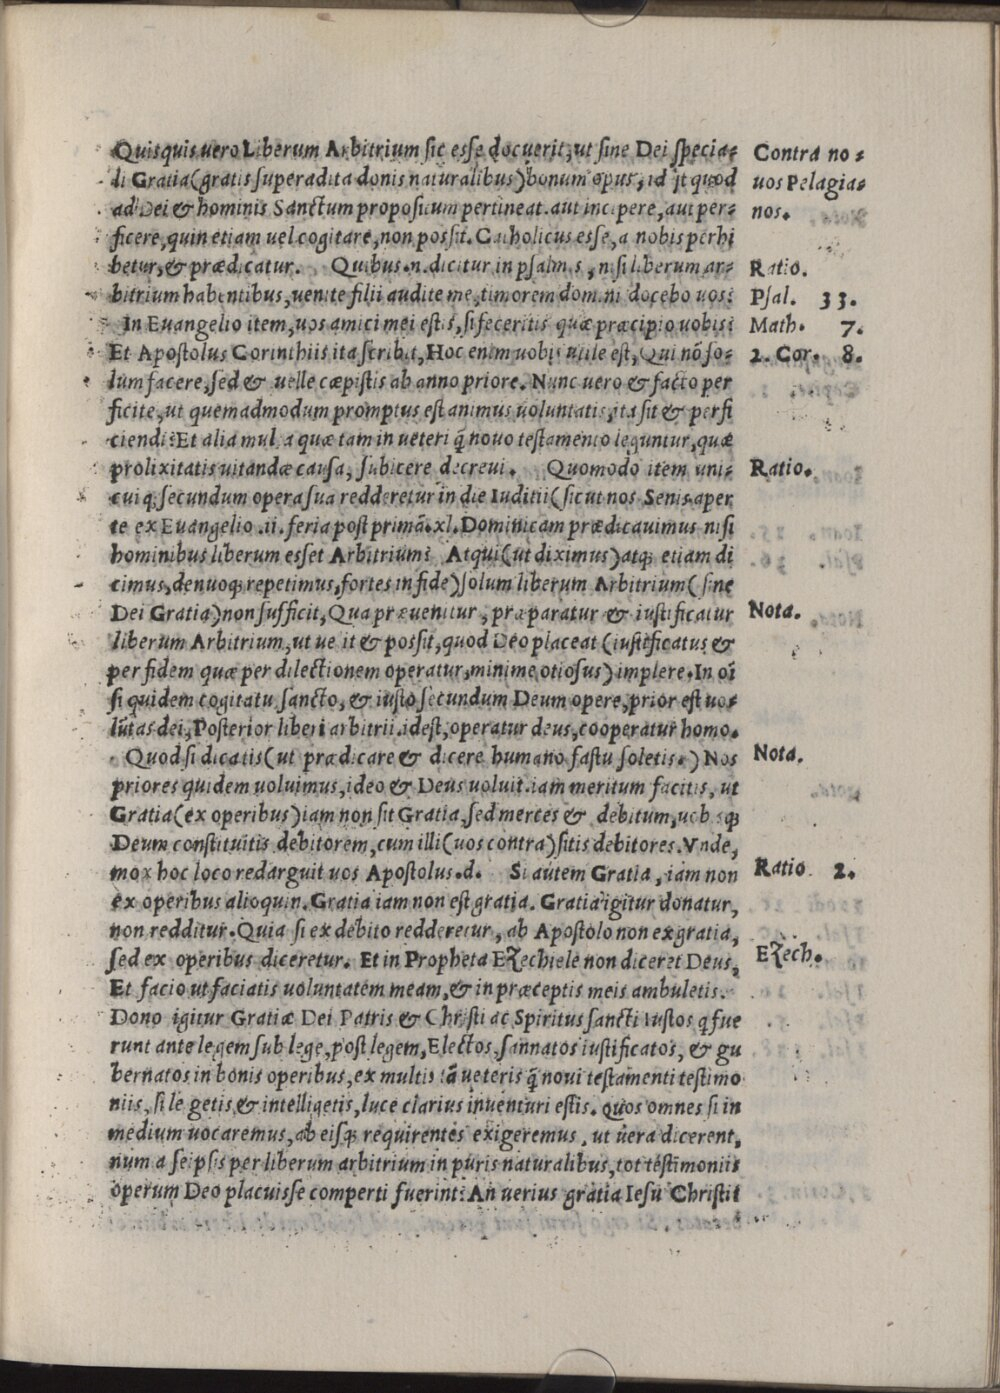 Quisquis uero Liberum Arbitrium sic esse docuerit, ut sine Dei specia= Contra no=
li Gratia (gratis superaddita donis naturalibus) bonum opus, id est quod uos Pelagia=
ad Dei & hominis Sanctum propositum pertineat. aut incipere, aut per= nos.
ficere, quin etiam uel cogitare, non possit. Catholicus esse, a nobis perhi
betur, & prædicatur. Quibus .n. dicitur in psalmis, nisi liberum ar= Ratio.
bitrium habentibus, uenite filij audite me, timorem domini docebo uos: Psal. 33.
In Euangelio item, uos amici mei estis, si feceritis quæ præcipio uobis: Math. 7.
Et Apostolus Corinthiis ita scribit, Hoc enim uobis utile est, Qui nõ so= 2. Cor. 8.
lum facere, sed & uelle cæpistis ab anno priore. Nunc uero & facto per
ficite, ut quemadmodum promptus est animus uoluntatis, ita sit & perfi
ciendi: Et alia multa quæ tam in ueteri q̃ nouo testamento leguntur, quæ
prolixitatis uitandæ causa, subicere decreui. Quomodo item uni= Ratio.
cuiq; secundum opera sua redderetur in die Iuditii (sicut nos Senis aper
te ex Euangelio .ii. feria post primã .xl. Dominicam prædicauimus nisi
hominibus liberum esset Arbitrium? Atqui (ut diximus) atq; etiam di
cimus, denuoq; repetimus, fortes in fide) solum liberum Arbitrium (sine
Dei Gratia) non sufficit, Qua præuenitur, præparatur & iustificatur Nota.
liberum Arbitrium, ut uelit & possit, quod Deo placeat (iustificatus &
per fidem quæ per dilectionem operatur, minime otiosus) implere. In oĩ
si quidem cogitatu sancto, & iusto secundum Deum opere, prior est uo=
lũtas dei, Posterior liberi arbitrii. idest, operatur deus, cooperatur homo.
Quod si dicatis (ut prædicare & dicere humano fastu soletis.) Nos Nota.
priores quidem uoluimus, ideo & Deus uoluit. iam meritum facitis, ut
Gratia (ex operibus) iam non sit Gratia, sed merces & debitum, uobisq;
Deum constituitis debitorem, cum illi (uos contra) sitis debitores. Vnde,
mox hoc loco redarguit uos Apostolus .d. Si autem Gratia, iam non Ratio 2.
ex operibus alioquin. Gratia iam non est gratia. Gratia igitur donatur,
non redditur. Quia si ex debito redderetur, ab Apostolo non ex gratia,
sed ex operibus diceretur. Et in Propheta Ezechiele non diceret Deus, Ezech.
Et facio ut faciatis uoluntatem meam, & in præceptis meis ambuletis.
Dono igitur Gratiæ Dei Patris & Christi ac Spiritus sancti Iustos q fue
runt ante legem sub lege, post legem, Electos, sannatos iustificatos, & gu
bernatos in bonis operibus, ex multis tã ueteris q̃ noui testamenti testimo
niis, si legetis & intelligetis, luce clarius inuenturi estis. quos omnes si in
medium uocaremus, ab eisq; requirentes exigeremus, ut uera dicerent,
num a seipsis per liberum arbitrium in puris naturalibus, tot testimoniis
operum Deo placuisse comperti fuerint: An uerius gratia Iesu Christi?